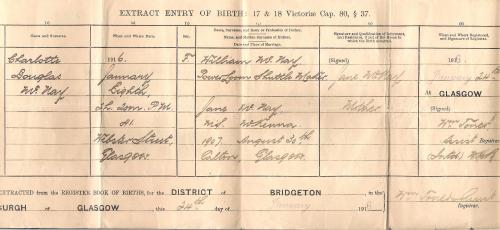 EXTRACT ENTRY OF BIRTH: 17 & 18 Victoriæ Cap. 80, § 37.
Name and Surname.
When and Where Born.
Name, Surname, and Rank or Profession of Father.
Name, and Maiden Surname of Mother.
Date and Place of Marriage.
Signature and Qualification of Informant, and Residence, if out of the House in which the Birth occurred.
When and Where Registered, and Signature of Registrar.
Charlotte
Douglas
McKay
1916.
January
Eighth
2h. 20m. P.M.
At
Webster Street,
Glasgow.
F.
William McKay
Power Loom Shuttle Maker
Jane McKay
M.S. McKenna
1907. August 30th
Calton, Glasgow.
(Signed)
Jane McKay
Mother
1916
January 24th
At GLASGOW
(Signed)
Wm
Asst Registrar
EXTRACTED from the REGISTER BOOK OF BIRTHS, for the DISTRICT of BRIDGETON in the
BURGH of GLASGOW, this 24th day of January 1916
Wm
Registrar.